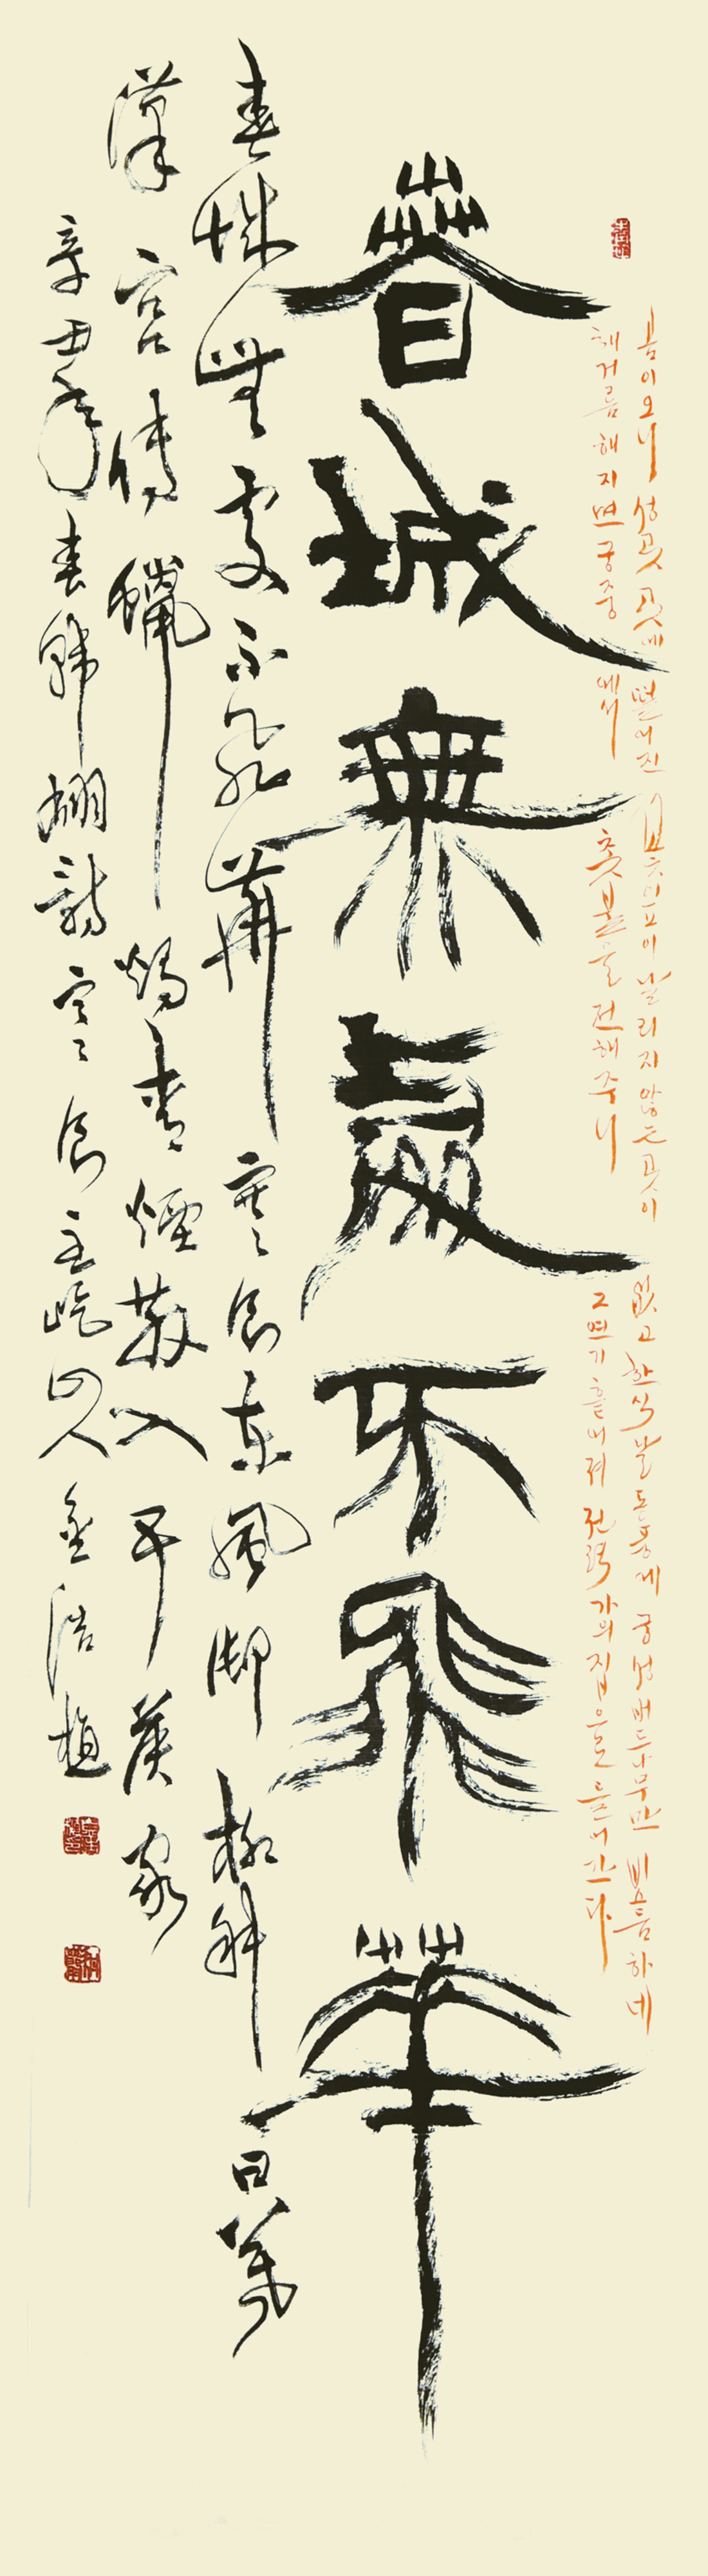 봄이 오니 성곽 곳곳에 떨어진 꽃잎이 날리지 않는 곳이 없고 한식날 동풍에 궁성 버드나무만 비스듬하네
해거름 해지면 궁중에서 촛불을 전해주니 그 연기 흩어져 권력가의 집으로 들어간다
春城無處不飛華
春城無處不飛華 寒食東風御柳斜 日暮
漢宮傳蠟燭青煙散入五侯家
辛丑年春韓翃詩寒食 主屹山人 金浩植